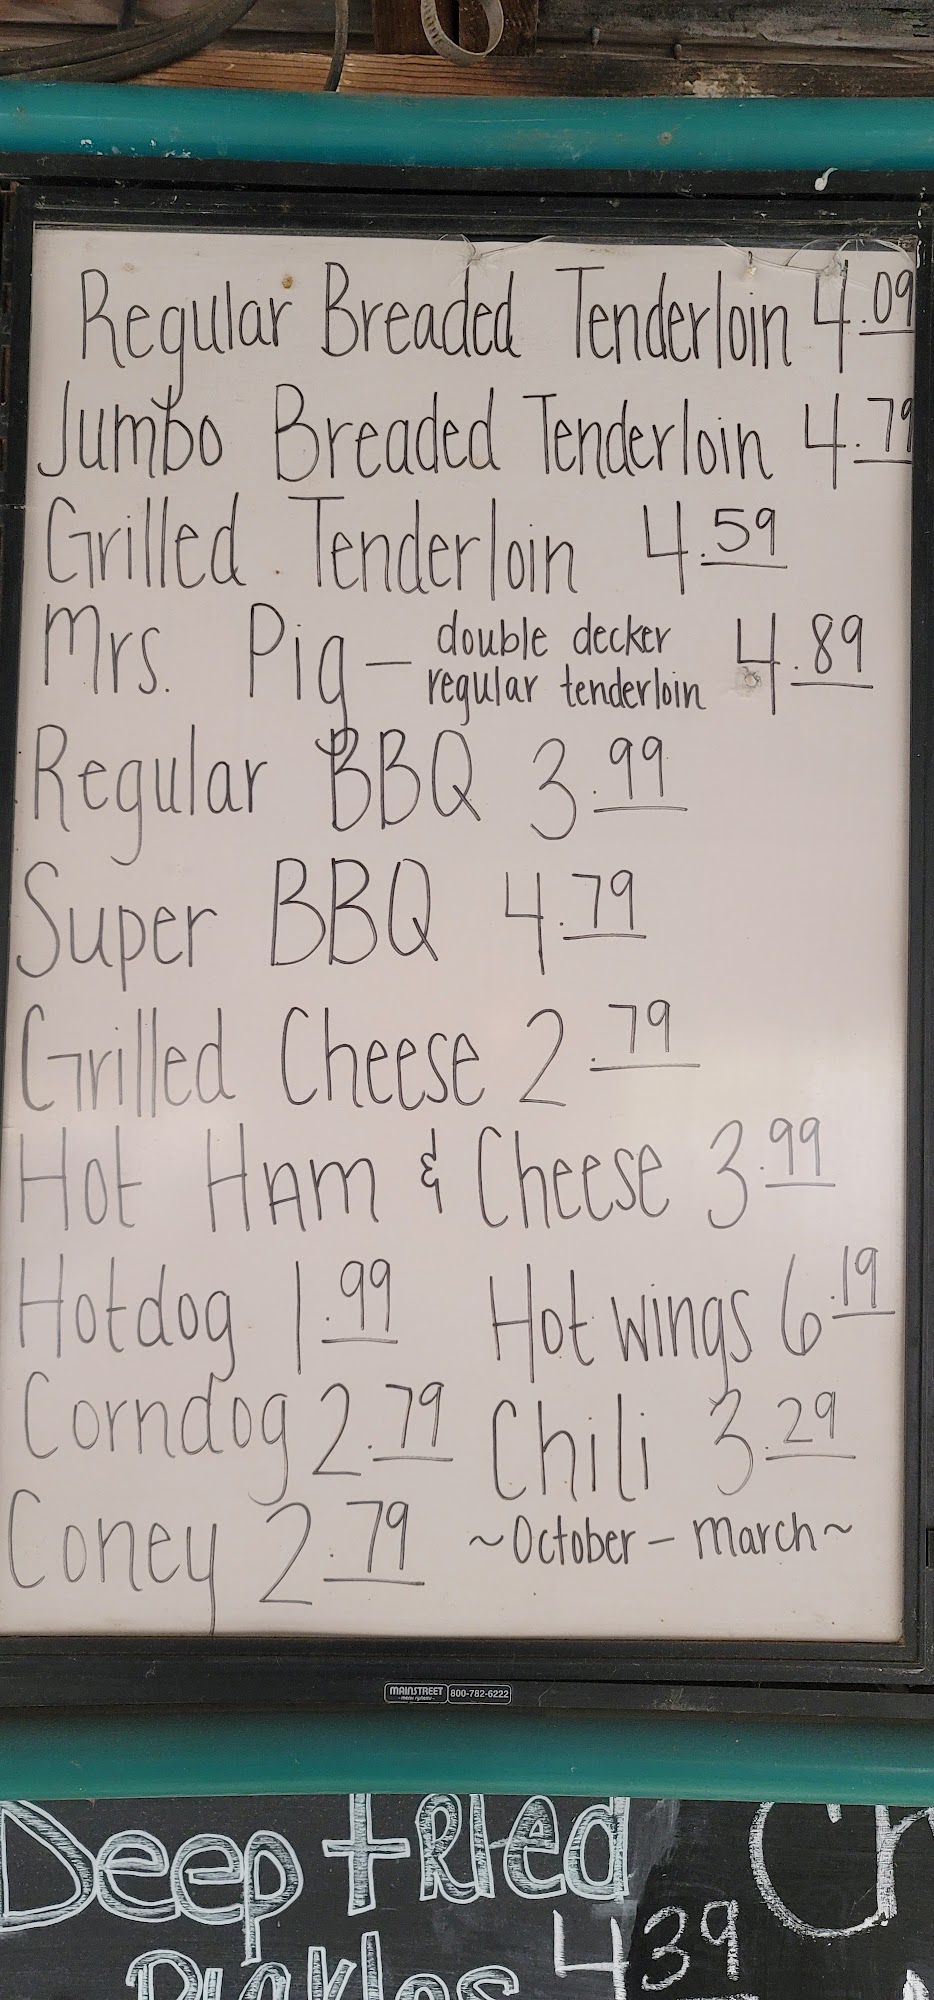 Regular Breaded Tenderloin 4.09
Jumbo Breaded Tenderloin 4.79
Grilled Tenderloin 4.59
Mrs. Pig - double decker regular tenderloin 4.89
Regular BBQ 3.99
Super BBQ 4.79
Grilled Cheese 2.79
Hot Ham & Cheese 3.99
Hotdog 1.99 Hot wings 6.19
Corndog 2.79 Chili 3.29
Coney 2.79 ~October - March~
MAINSTREET
- menu systems -
800-782-6222
Deep Fried
Pickles 4 39